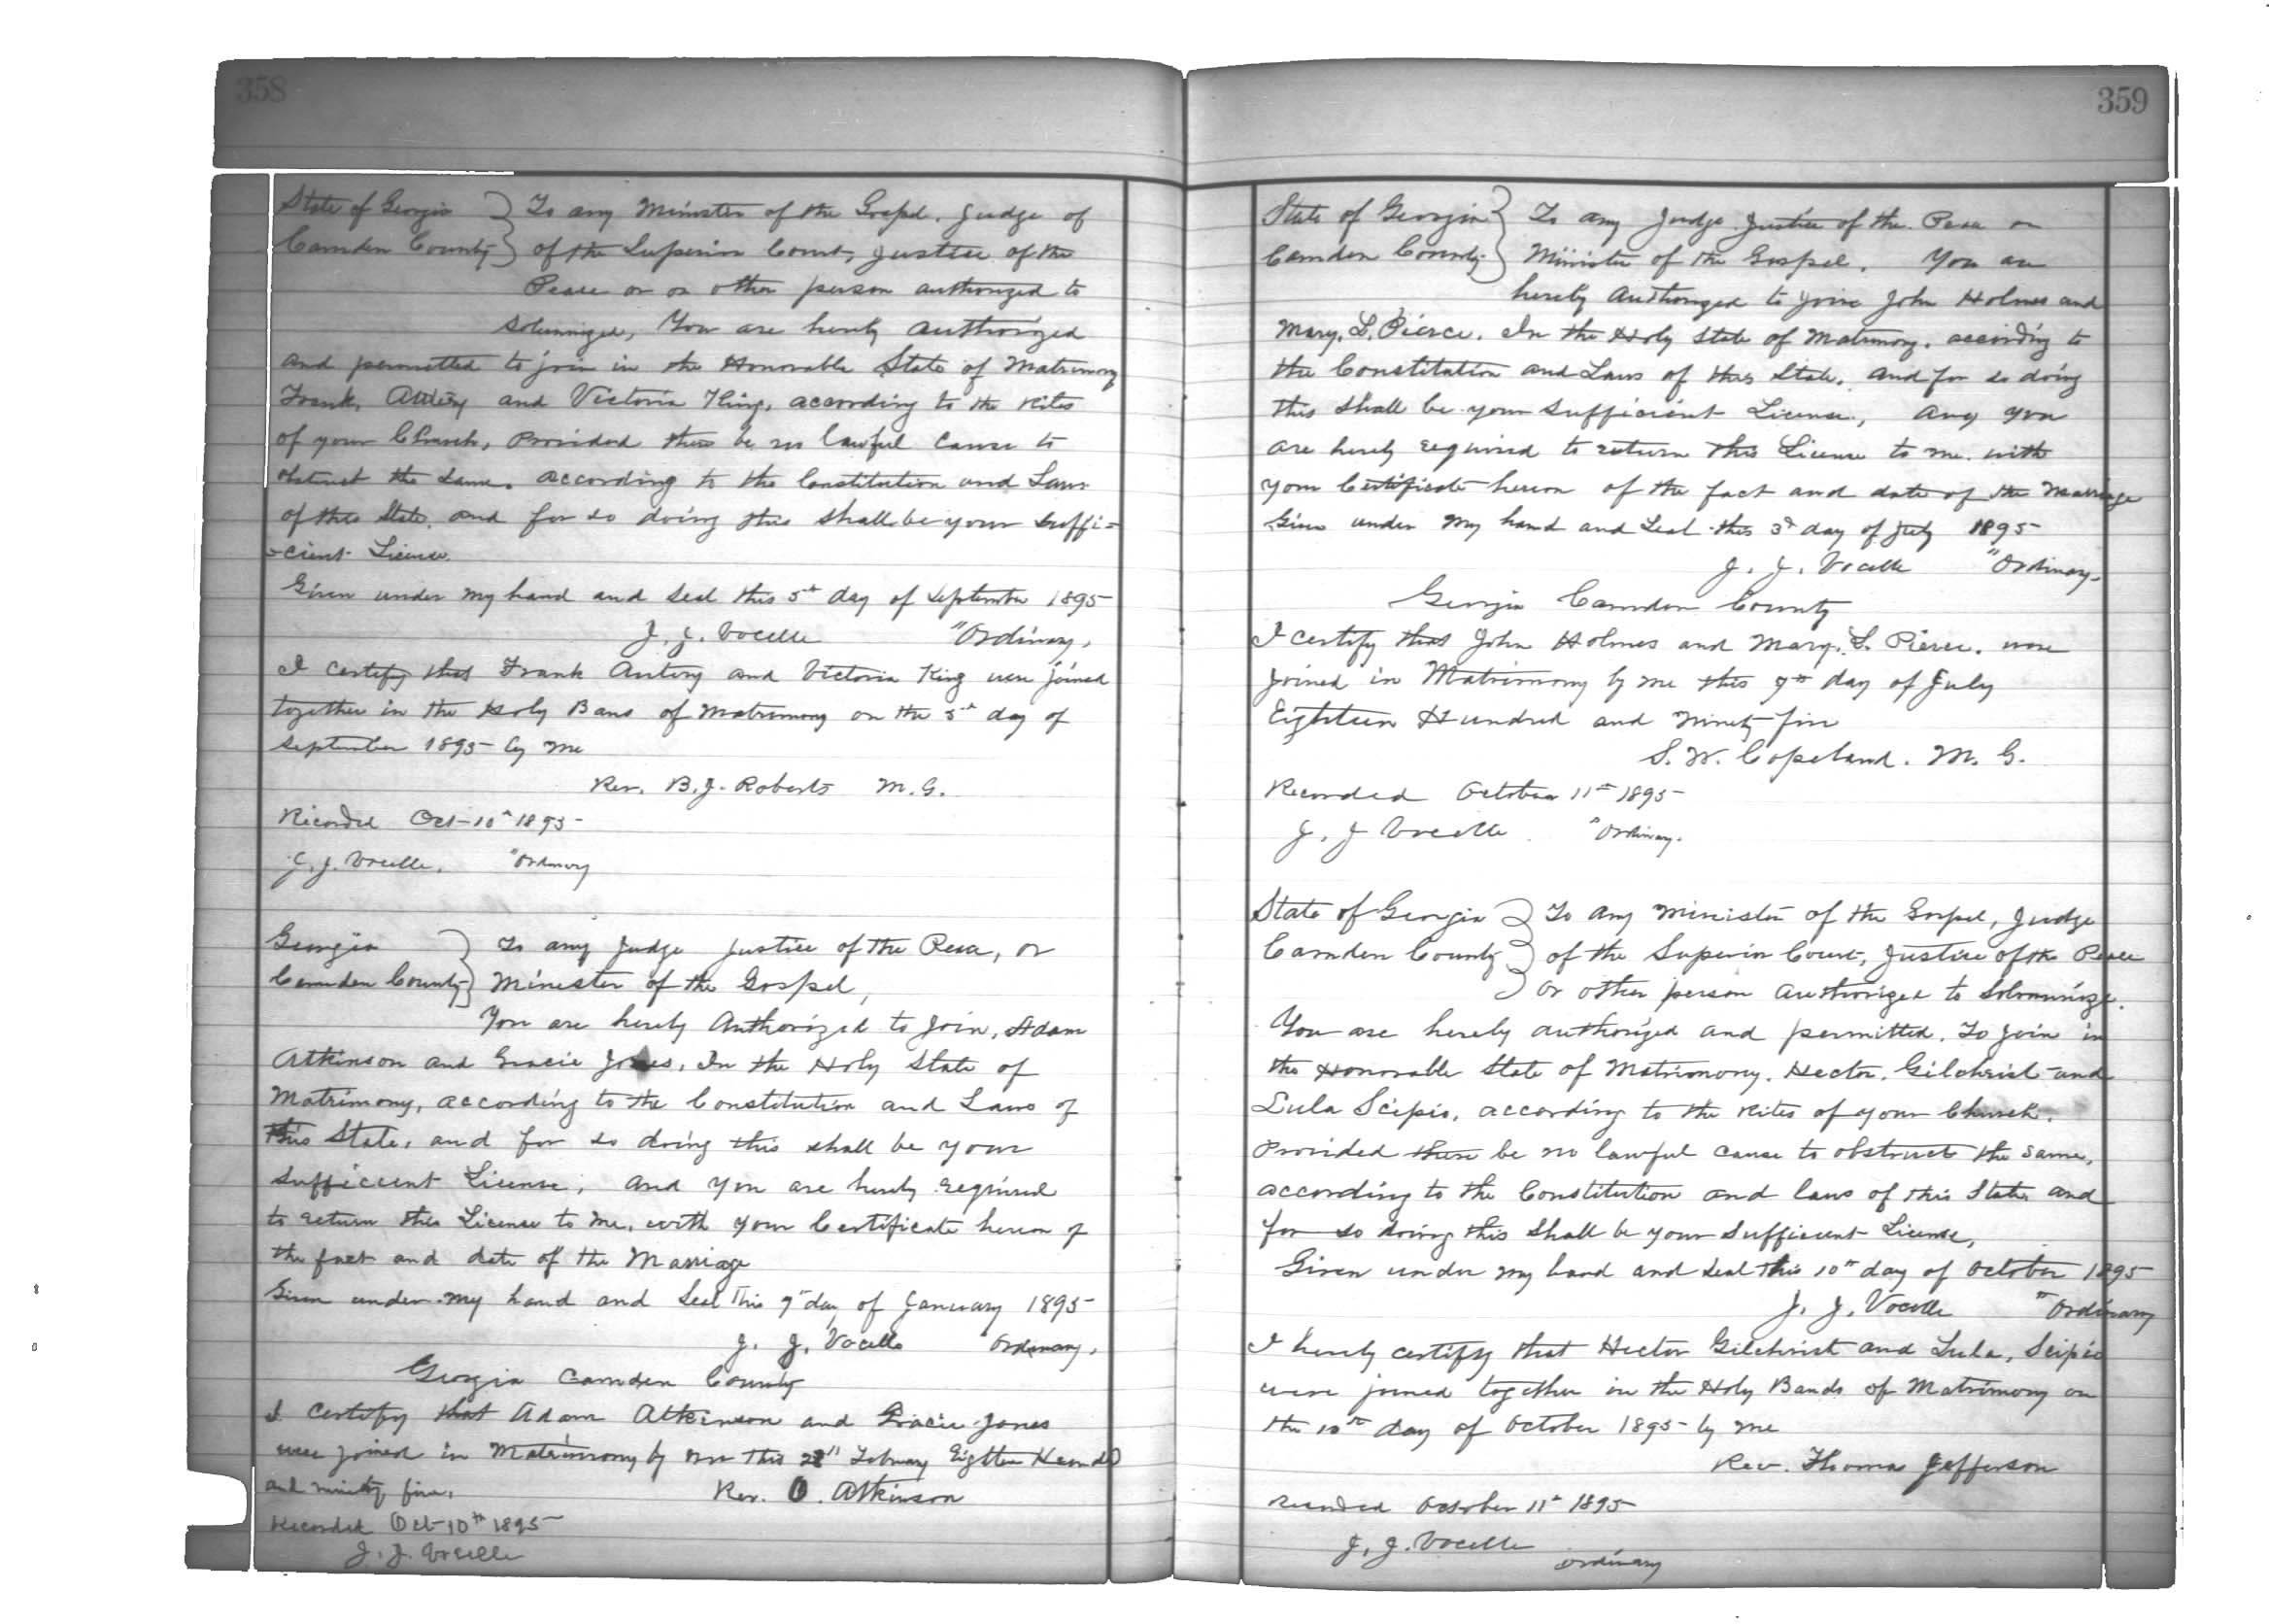 358
State of Georgia } To any Minister of the Gospel, Judge of
Camden County } of the Superior Court, Justice of the
Peace or or other person authorized to
Solemnized, You are hereby Authorized
and permitted to join in the Honorable State of Matrimony
Frank, and Victoria King, according to the Rites
of your Church, Provided there be no lawful Cause to
obstruct the same. according to the Constitution and Laws
of this State, and for so doing this shall be your suffi=
-cient License.
Given under my hand and seal this 5th day of September 1895
J. J. Vocelle "Ordinary,
I certify that Frank and Victoria King were joined
together in the Holy Bans of Matrimony on the 5th day of
September 1895 by me
Rev. B. J. Roberts M. G.
Recorded Oct 10th 1895
J. J. Vocelle, "Ordinary
Georgia } To any Judge Justice of the Peace, or
Camden County } Minister of the Gospel,
You are hereby Authorized to Join, Adam
Atkinson and Gracie Jones, In the Holy State of
Matrimony, according to the Constitution and Laws of
this State, and for so doing this shall be your
sufficient License, and you are hereby required
to return this License to me, with your Certificate hereon of
the fact and date of the Marriage
Given under my hand and Seal This 9th day of January 1895
J. J. Vocelle Ordinary,
Georgia Camden County
I Certify that Adam Atkinson and Gracie Jones
were joined in Matrimony by me this 28" February Eighteen Hundd
and ninety five,
Rev. O. Atkinson
Recorded Oct 10th 1895
J. J. Vocelle
359
State of Georgia } To any Judge Justice of the Peace or
Camden County } Minister of the Gospel. You are
hereby Authorized to joine John Holmes and
Mary. L. Pierce. In the Holy State of Matrimony, according to
the Constitution and Laws of this State, and for so doing
this shall be your sufficient License, Any you
are hereby required to return this License to me with
your Certificate hereon of the fact and date of the Marriage
Given under my hand and Seal this 3d day of July 1895
J. J. Vocelle "Ordinary
Georgia Camden County
I certify that John Holmes and Mary. L. Pierce. were
joined in Matrimony by me this 9th day of July
Eighteen Hundred and Ninety five
S. W. Copeland. M. G.
Recorded October 11th 1895
J. J Vocelle "Ordinary.
State of Georgia } To any Minister of the Gospel, Judge
Camden County } of the Superior Court, Justice of the Peace
} or other person authorized to Solemnize.
You are hereby authorized and permitted. To join in
the Honorable State of Matrimony. Hector. Gilchrist and
Lula Scipio, according to the Rites of your Church.
Provided there be no lawful cause to obstruct the same,
according to the Constitution and laws of this State and
for so doing this shall be your Sufficient License,
Given under my hand and seal this 10th day of October 1895
J. J. Vocelle "Ordinary
I hereby certify that Hector Gilchrist and Lula, Scipio
were joined together in the Holy Bands of Matrimony on
the 10th day of October 1895 by me
Rev. Thomas Jefferson
Recorded October 11th 1895
J. J. Vocelle ordinary